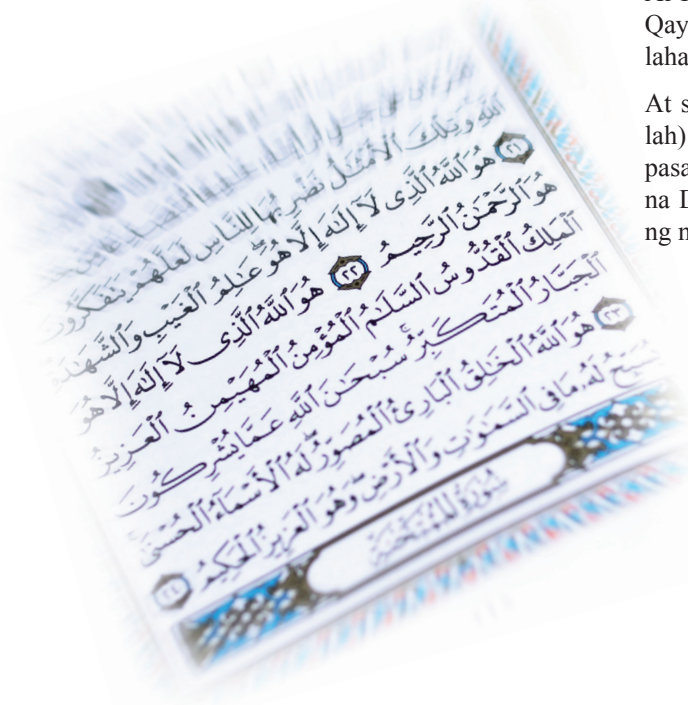 Qay
laha
At s
lah)
pasa
na D
ng
ٱللَّهِ وَتِلْكَ ٱلْأَمْثَٰلُ نَضْرِبُهَا لِلنَّاسِ لَعَلَّهُمْ يَتَفَكَّرُونَ
٢١ هُوَ ٱللَّهُ ٱلَّذِى لَآ إِلَٰهَ إِلَّا هُوَ عَٰلِمُ ٱلْغَيْبِ وَٱلشَّهَٰدَةِ
هُوَ ٱلرَّحْمَٰنُ ٱلرَّحِيمُ ٢٢ هُوَ ٱللَّهُ ٱلَّذِى لَآ إِلَٰهَ إِلَّا هُوَ
ٱلْمَلِكُ ٱلْقُدُّوسُ ٱلسَّلَٰمُ ٱلْمُؤْمِنُ ٱلْمُهَيْمِنُ ٱلْعَزِيزُ
ٱلْجَبَّارُ ٱلْمُتَكَبِّرُ ۚ سُبْحَٰنَ ٱللَّهِ عَمَّا يُشْرِكُونَ
٢٣ هُوَ ٱللَّهُ ٱلْخَٰلِقُ ٱلْبَارِئُ ٱلْمُصَوِّرُ ۖ لَهُ ٱلْأَسْمَآءُ ٱلْحُسْنَىٰ ۚ
يُسَبِّحُ لَهُۥ مَا فِى ٱلسَّمَٰوَٰتِ وَٱلْأَرْضِ ۖ وَهُوَ ٱلْعَزِيزُ ٱلْحَكِيمُ ٢٤
سُورَةُ ٱلْمُمْتَحَنَةِ